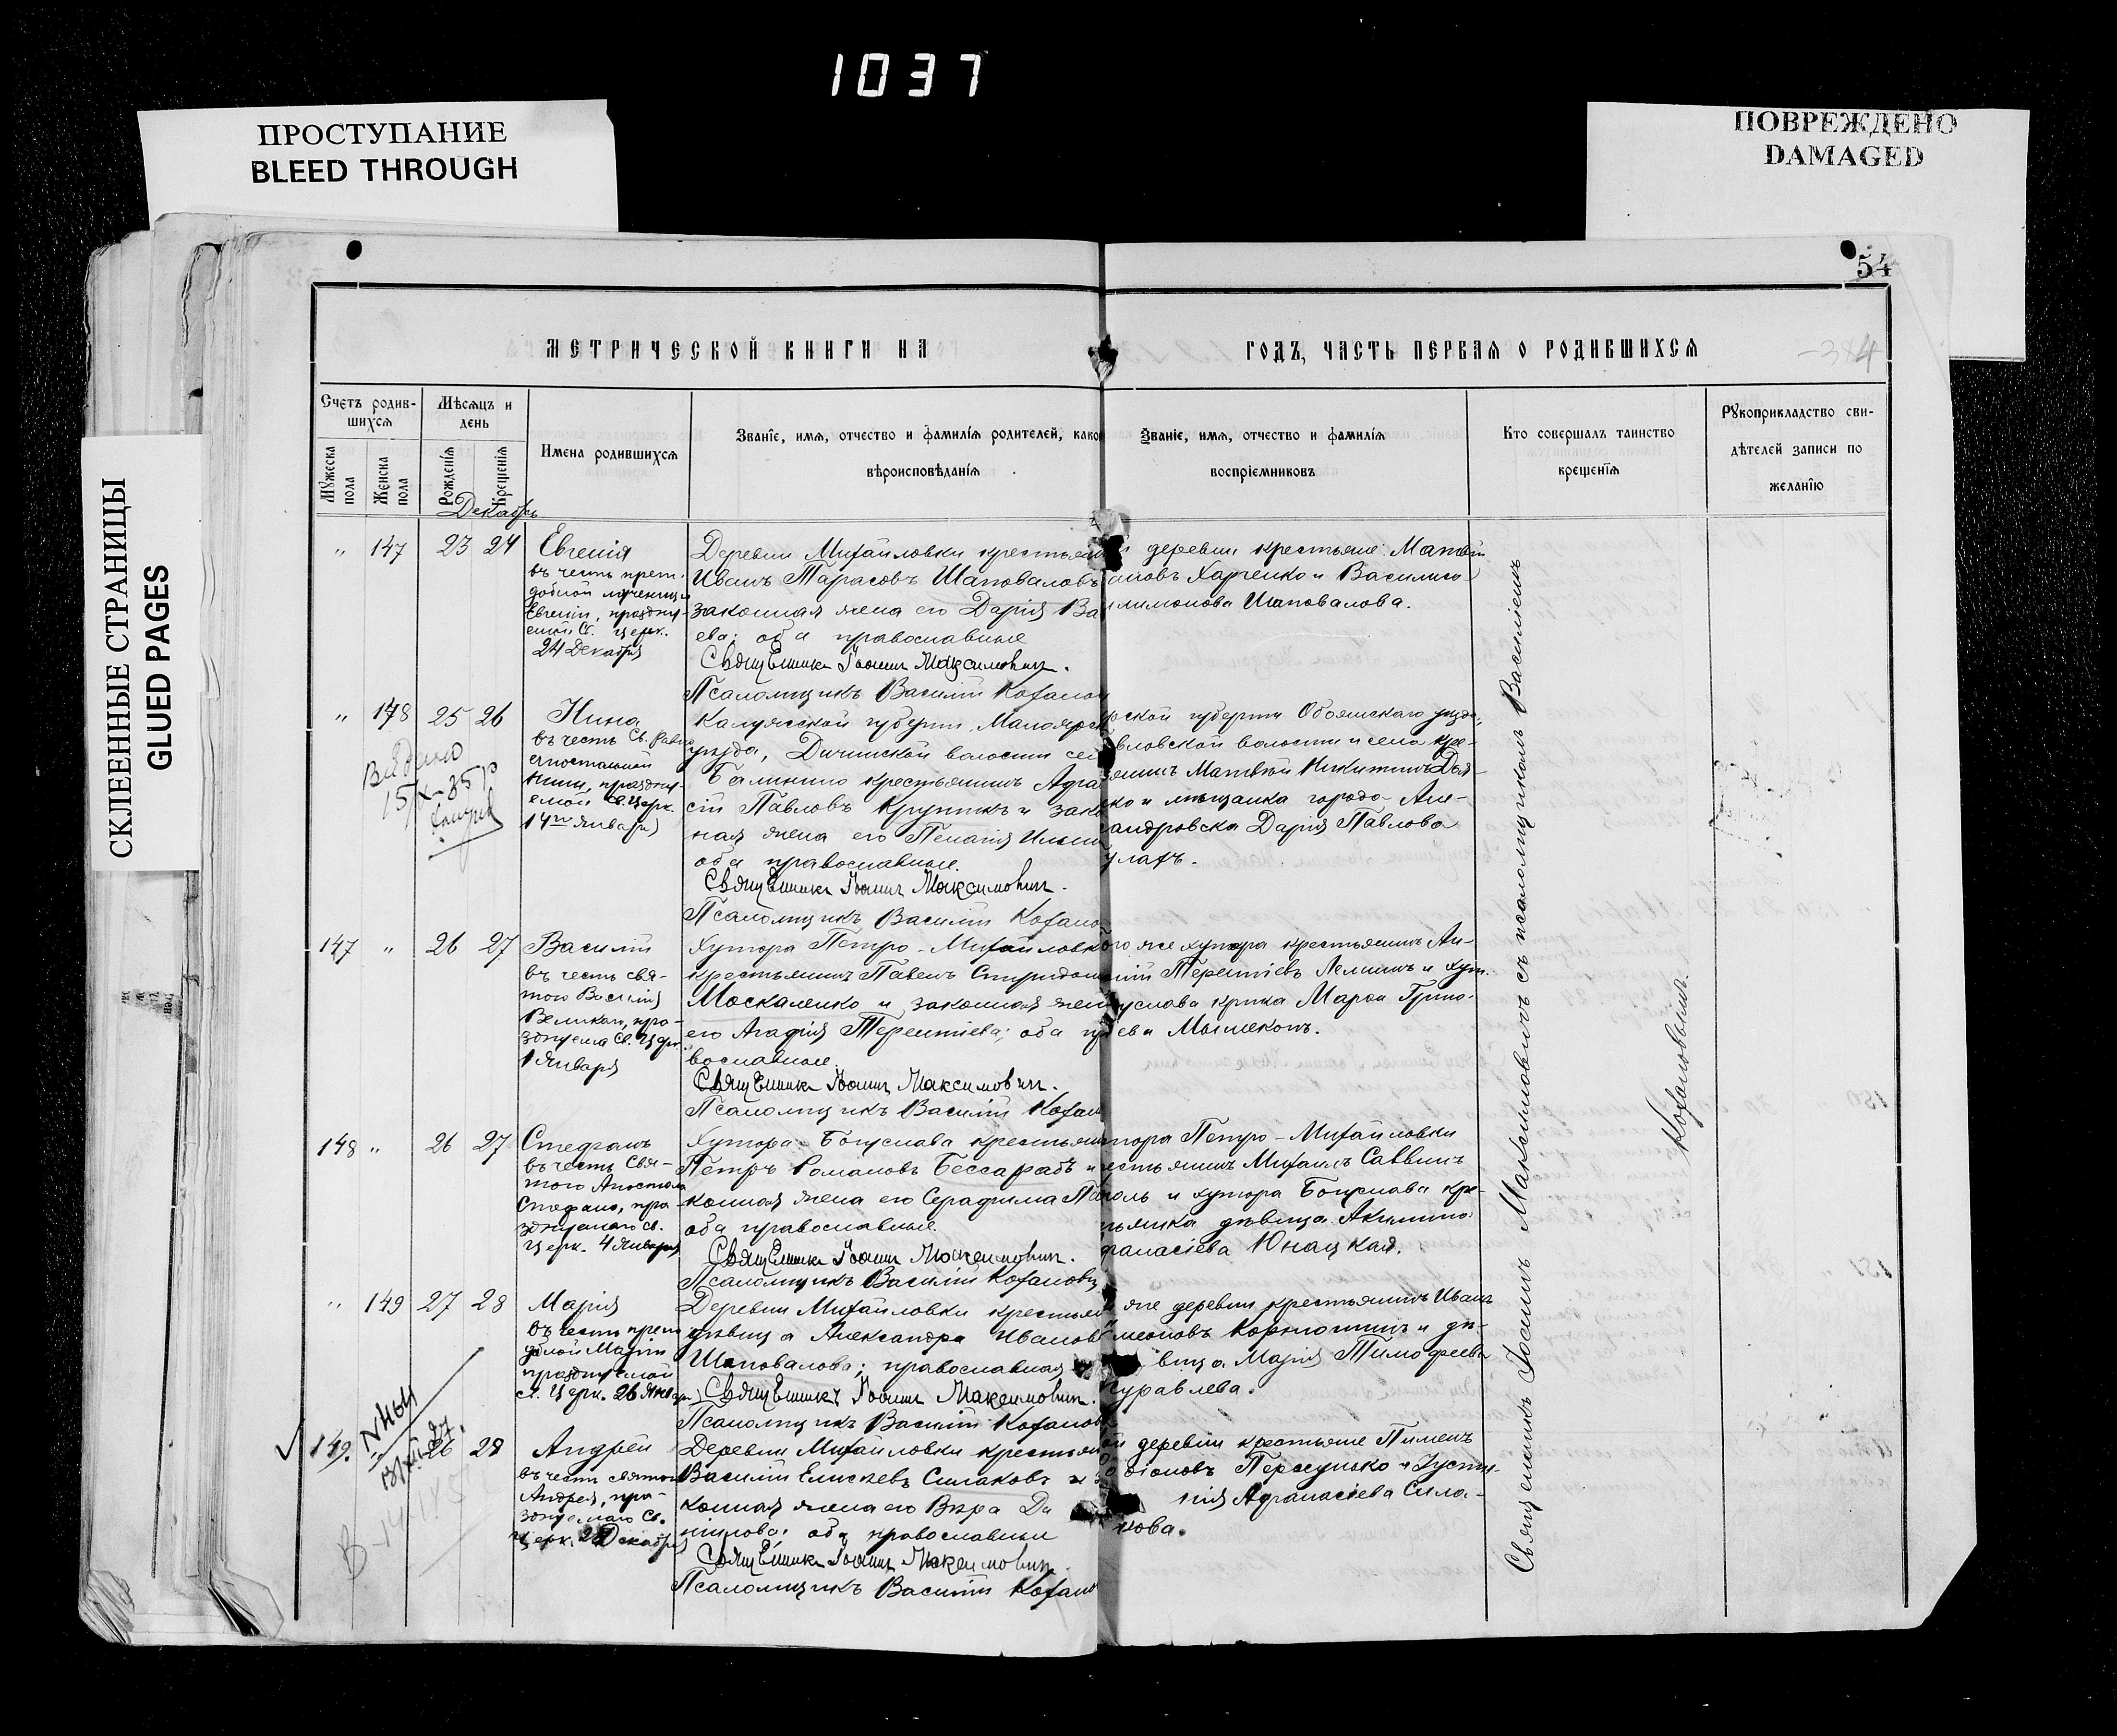 1037
ПРОСТУПАНИЕ
BLEED THROUGH
ПОВРЕЖДЕНО
DAMAGED
СКЛЕЕННЫЕ СТРАНИЦЫ
GLUED PAGES
54
МЕТРИЧЕСКОЙ КНИГИ НА
ГОДЪ, ЧАСТЬ ПЕРВАЯ О РОДИВШИХСЯ
Счетъ родив-
шихся
Мужеска
пола
Женска
пола
Мѣсяцъ и
день
Рожденія
Крещенія
Имена родившихся
Званіе, имя, отчество и фамилія родителей, како
вѣроисповѣданія
Званіе, имя, отчество и фамилія
воспріемниковъ
Кто совершалъ таинство
крещенія
Рукоприкладство сви-
дѣтелей записи по
желанію
Декабрь
" 147 23 24
Евгенія
въ честь преп.
добной мученицы
Евгеніи, праздну-
емой Св. Церк.
24 Декабря
Деревни Михайловки крестьян
Иванъ Тарасовъ Шаповаловъ
законная жена его Дарія Ва
ева; оба православные
Священникъ Іоаннъ Максимовичъ.
Псаломщикъ Василій Кофанов
деревни крестьяне: Матвѣй
ановъ Харченко и Василиса
лимонова Шаповалова.
" 148 25 26
Нина
въ честь Св. равно
апостольной
Нины, праздну-
емой Св. Церк.
14го Января
Калужской губерніи Малояро
уѣзда, Дичинской волости сел
Балинино крестьянинъ Афа
сій Павловъ Крупникъ и зако
ная жена его Пелагія Ильин
оба православные.
Священникъ Іоаннъ Максимовичъ.
Псаломщикъ Василій Кофано
рской губерніи Обоянскаго уѣзда,
вловской волости и села кре-
янинъ Матвѣй Никитинъ Дья-
ко и мѣщанка города Але-
андровска Дарія Павлова
улахъ.
147 " 26 27
Василій
въ честь свя-
того Василія
Великаго, пра-
зднуема Св. Церк.
1 Января
Хутора Петро-Михайловк
крестьянинъ Павелъ Спиридон
Москаленко и законная жен
его Агафія Терентіева; оба пр
вославные.
Священникъ Іоаннъ Максимовичъ.
Псаломщикъ Василій Кофан
ого же хутора крестьянинъ Ан-
Терентіевъ Лемишъ и хут.
услава крпка Марфа Григо-
ева
148 " 26 27
Стефанъ
въ честь Свя-
того Апостола
Стефана, пра-
зднуемаго Св.
Церк. 4 Января
Хутора Богуслава крестьян
Петръ Романовъ Бессарабъ и
конная жена его Серафима Па
оба православные.
Священникъ Іоаннъ Максимовичъ.
Псаломщикъ Василій Кофанови
тора Петро-Михайловки
естьянинъ Михаилъ Саввинъ
оль и хутора Богуслава кре-
ьянка дѣвица Акилина
фанасіева Юнацкая.
" 149 27 28
Марія
въ честь препо
добной Маріи
празднуемой
Св. Церк. 26 Янв
Деревни Михайловки крестьян
дѣвица Александра Иванов
Шаповалова; православная
Священникъ Іоаннъ Максимовичъ.
Псаломщикъ Василій Кофанов
же деревни крестьянинъ Иванъ
меоновъ Корнюшинъ и дѣ-
вица Марія Тимофеева
Журавлева.
149. 26 28
Андрей
въ честь святого
Андрея, пра-
зднуемаго Св.
Церк. 28 Декабря
Деревни Михайловки крестьян
Василій Елисеевъ Силаковъ и з
конная жена его Вѣра Да
ниилова; оба православные
Священникъ Іоаннъ Максимовичъ.
Псаломщикъ Василій Кофано
деревни крестьяне Пименъ
Пересунько и Іусти-
нія Афанасіева Сила-
кова.
Священникъ Іоаннъ Максимовичъ съ псаломщикомъ Василіемъ
Кофановымъ.